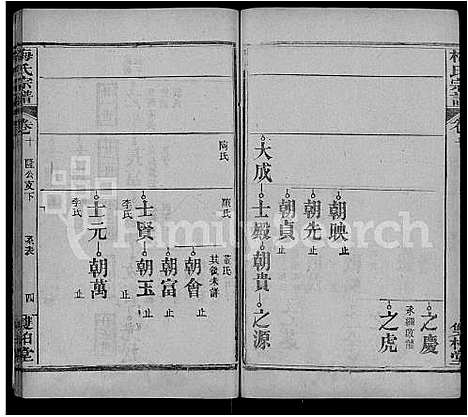 梅氏宗譜
卷
之慶
承繼啟龍
之虎
朝映 止
朝先 止
朝貞 止
大成 士殿 朝貴 之源
陶氏 龍氏 黃氏
其後未譜
朝會 止
朝富 止
士賢 朝玉 止
李氏
士元 朝萬 止
李氏
梅氏宗譜
卷十
公支下
系表
四
雙柏堂
FamilySearch